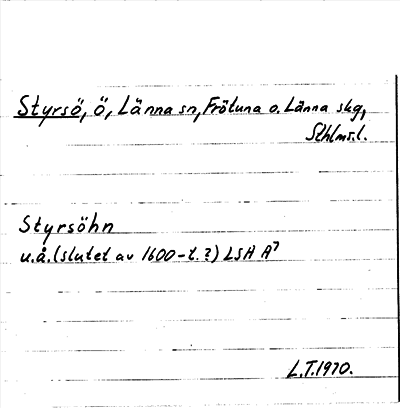 Styrsö, ö, Länna sn, Frötuna o. Länna skg,
Sthlms l.
Styrsöhn
u.å. (slutet av 1600-t.?) LSA A7
L.T. 1970.